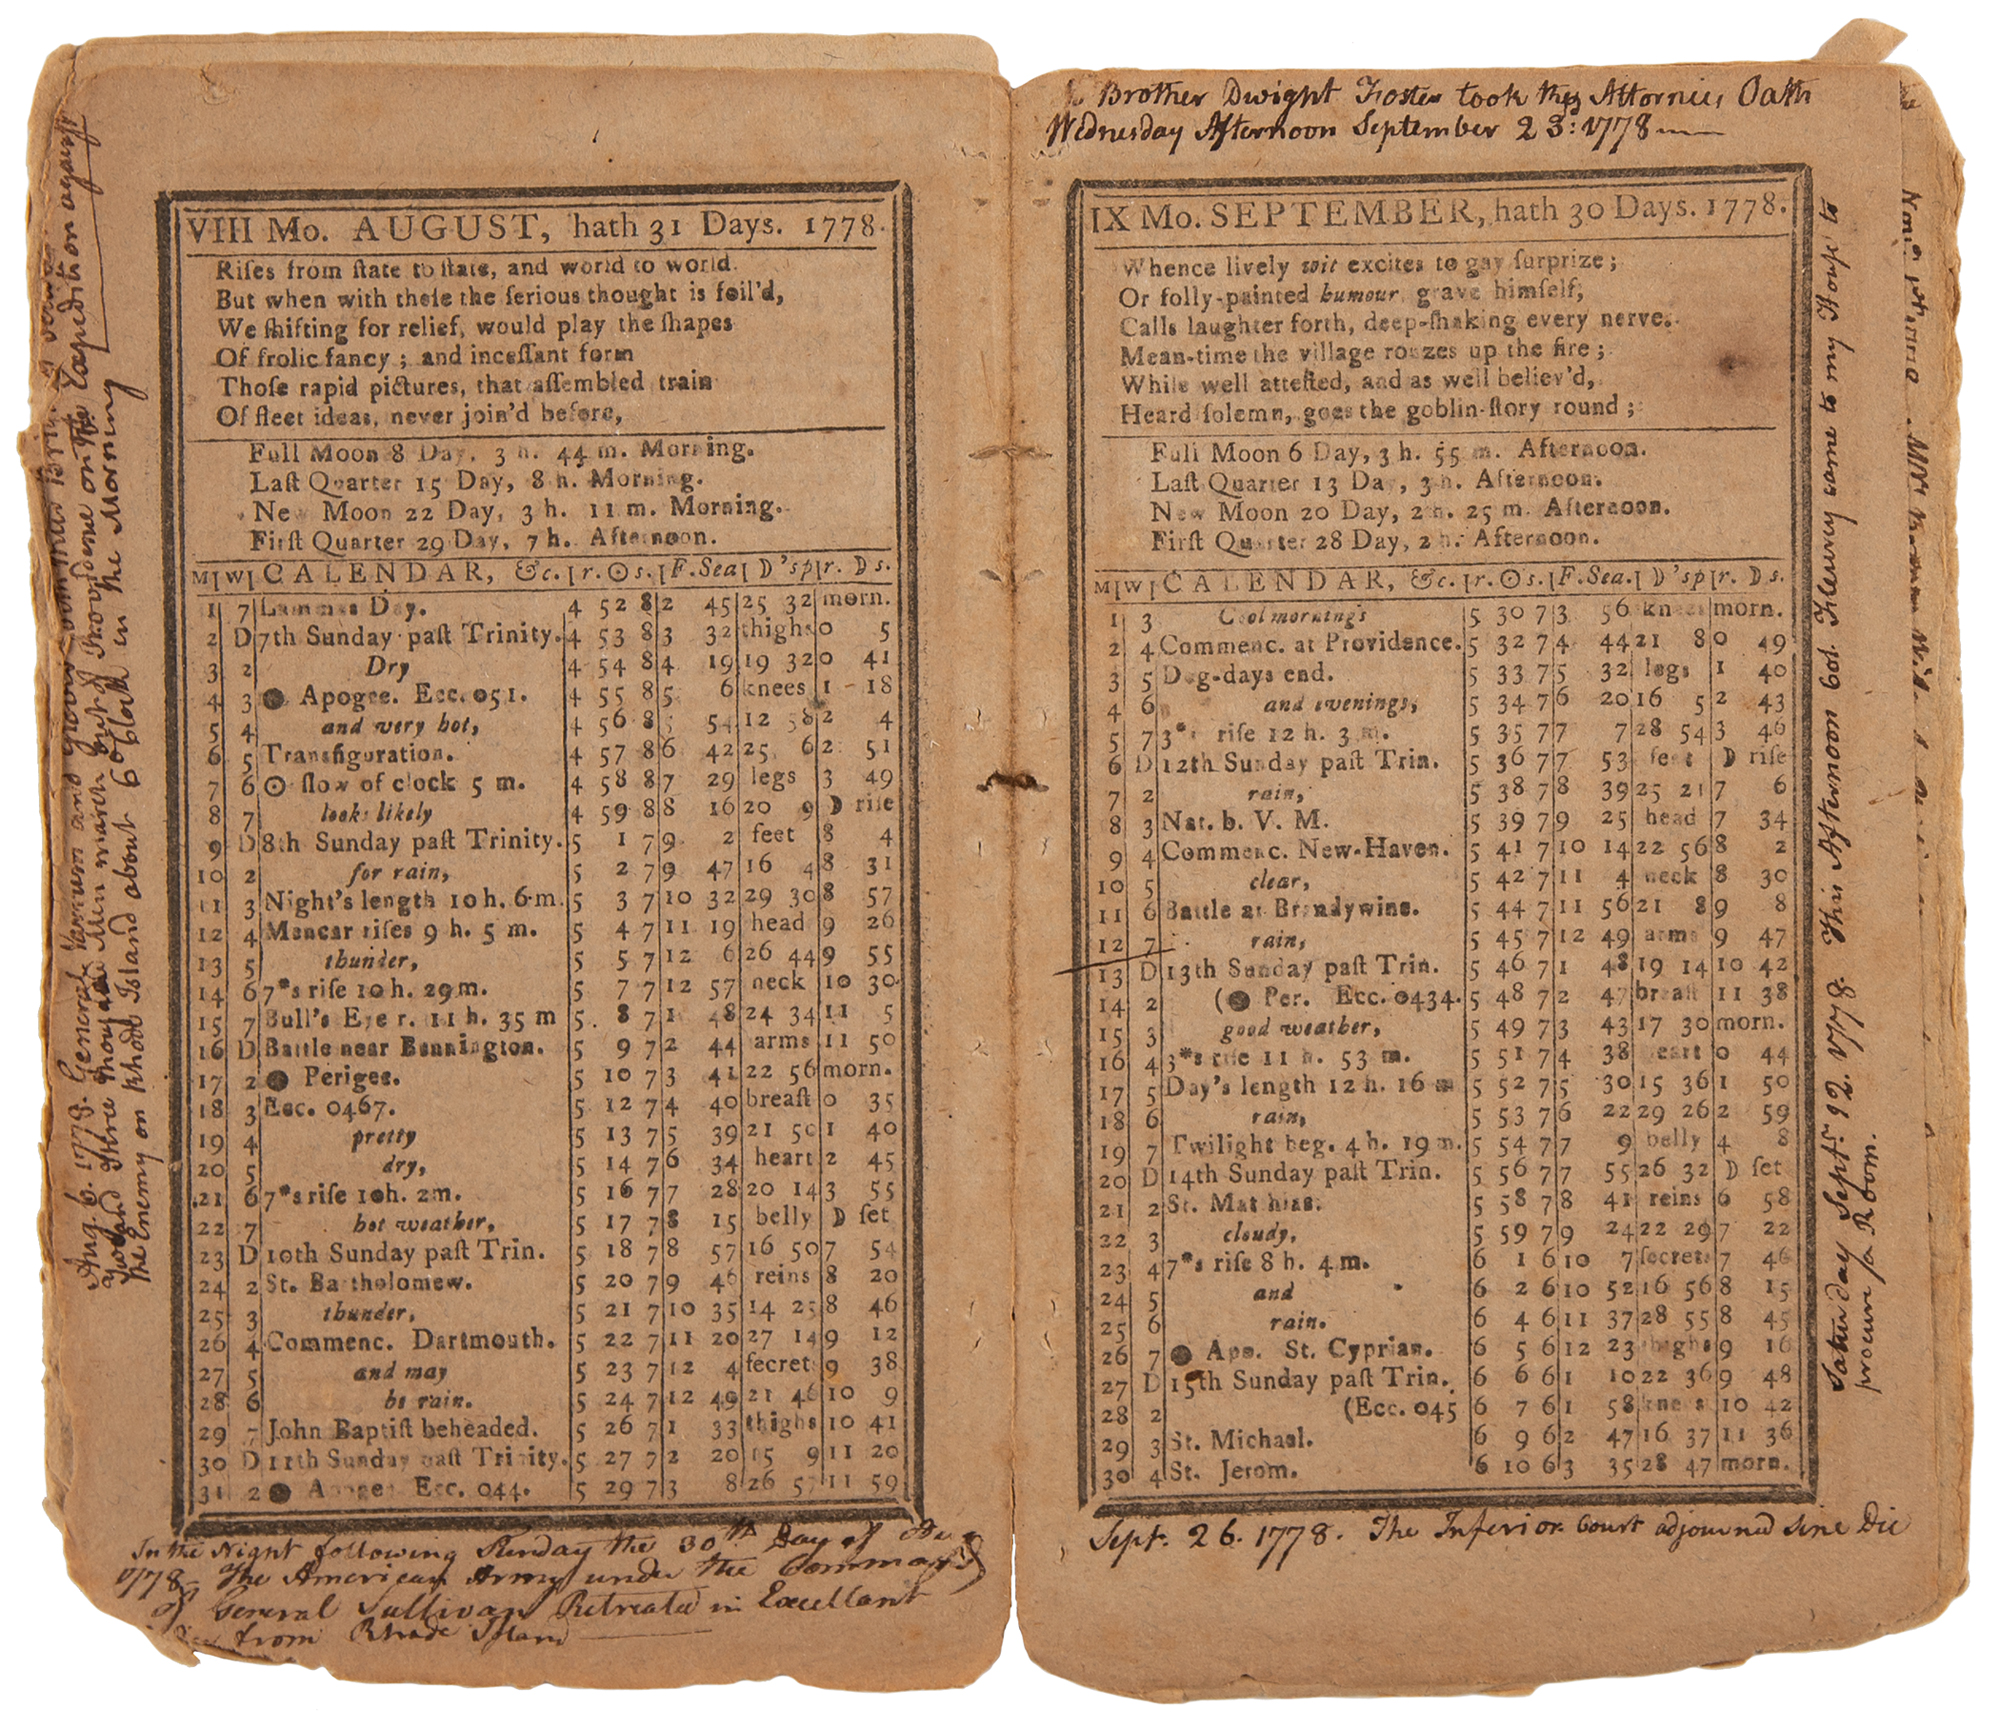 Aug. 6. 1778. General Varnum and
Three Thousand Men march out of Providence on the Expedition against
the Enemy on Rhode Island about 6 oClock in the Morning
VIII Mo. AUGUST, hath 31 Days. 1778.
Riſes from ſtate to ſtate, and world to world.
But when with theſe the ſerious thought is foil'd,
We ſhifting for relief, would play the ſhapes
Of frolic fancy; and inceſſant form
Thoſe rapid pictures, that aſſembled train
Of fleet ideas, never join'd before,
Full Moon 8 Day, 3 h. 44 m. Morning.
Laſt Quarter 15 Day, 8 h. Morning.
New Moon 22 Day, 3 h. 11 m. Morning.
Firſt Quarter 29 Day, 7 h. Afternoon.
M| W| CALENDAR, &c. | r. ☉ s. | F. Sea | D 's p | r. D s.
1 7 Lammas Day. 4 52 8 2 45 25 32 morn.
2 D 7th Sunday paſt Trinity. 4 53 8 3 32 thighs 0 5
3 2 Dry 4 54 8 4 19 19 32 0 41
4 3 ● Apogee. Ecc. 051. 4 55 8 5 6 knees 1 18
5 4 and very hot, 4 56 8 5 54 12 58 2 4
6 5 Transfiguration. 4 57 8 6 42 25 6 2 51
7 6 ☉ ſlow of clock 5 m. 4 58 8 7 29 legs 3 49
8 7 looks likely 4 59 8 8 16 20 9 D riſe
9 D 8th Sunday paſt Trinity. 5 1 7 9 2 feet 8 4
10 2 for rain, 5 2 7 9 47 16 4 8 31
11 3 Night's length 10 h. 6 m. 5 3 7 10 32 29 30 8 57
12 4 Mencar riſes 9 h. 5 m. 5 4 7 11 19 head 9 26
13 5 thunder, 5 5 7 12 6 26 44 9 55
14 6 7*s riſe 10 h. 29 m. 5 7 7 12 57 neck 10 30
15 7 Bull's Eye r. 11 h. 35 m 5 8 7 1 48 24 34 11 5
16 D Battle near Bennington. 5 9 7 2 44 arms 11 50
17 2 ● Perigee. 5 10 7 3 41 22 56 morn.
18 3 Ecc. 0467. 5 12 7 4 40 breaſt 0 35
19 4 pretty 5 13 7 5 39 21 50 1 40
20 5 dry, 5 14 7 6 34 heart 2 45
21 6 7*s riſe 10h. 2m. 5 16 7 7 28 20 14 3 55
22 7 hot weather, 5 17 7 8 15 belly D ſet
23 D 10th Sunday paſt Trin. 5 18 7 8 57 16 50 7 54
24 2 St. Bartholomew. 5 20 7 9 46 reins 8 20
25 3 thunder, 5 21 7 10 35 14 25 8 46
26 4 Commenc. Dartmouth. 5 22 7 11 20 27 14 9 12
27 5 and may 5 23 7 12 4 ſecret 9 38
28 6 be rain. 5 24 7 12 49 21 46 10 9
29 7 John Baptiſt beheaded. 5 26 7 1 33 thighs 10 41
30 D 11th Sunday paſt Trinity. 5 27 7 2 20 15 9 11 20
31 2 ● Apogee Ecc. 044. 5 29 7 3 8 26 57 11 59
In the Night following Sunday the 30th Day of Aug
1778 The American Army under the Command
of General Sullivan Retreated in Excellant
from Rhode Island
Brother Dwight Foster took the Attornies Oath
Wednesday Afternoon September 23: 1778
IX Mo. SEPTEMBER, hath 30 Days. 1778.
Whence lively wit excites to gay ſurprize;
Or folly-painted humour, grave himſelf,
Calls laughter forth, deep-ſhaking every nerve.
Mean-time the village rouzes up the fire;
While well atteſted, and as well believ'd,
Heard ſolemn, goes the goblin-ſtory round;
Full Moon 6 Day, 3 h. 55 m. Afternoon.
Laſt Quarter 13 Day, 3 h. Afternoon.
New Moon 20 Day, 2 h. 25 m. Afternoon.
Firſt Quarter 28 Day, 2 h. Afternoon.
M| W| CALENDAR, &c. | r. ☉ s. | F. Sea. | D 's p | r. D s.
1 3 Cool mornings 5 30 7 3 56 knees morn.
2 4 Commenc. at Providence. 5 32 7 4 44 21 8 0 49
3 5 Dog-days end. 5 33 7 5 32 legs 1 40
4 6 and evenings, 5 34 7 6 20 16 5 2 43
5 7 3*s riſe 12 h. 3 m. 5 35 7 7 7 28 54 3 46
6 D 12th Sunday paſt Trin. 5 36 7 7 53 feet D riſe
7 2 rain, 5 38 7 8 39 25 21 7 6
8 3 Nat. b. V. M. 5 39 7 9 25 head 7 34
9 4 Commenc. New-Haven. 5 41 7 10 14 22 56 8 2
10 5 clear, 5 42 7 11 4 neck 8 30
11 6 Battle at Brandywine. 5 44 7 11 56 21 8 9 8
12 7 rain, 5 45 7 12 49 arms 9 47
13 D 13th Sunday paſt Trin. 5 46 7 1 48 19 14 10 42
14 2 (● Per. Ecc. 0434. 5 48 7 2 47 breaſt 11 38
15 3 good weather, 5 49 7 3 43 17 30 morn.
16 4 3*s riſe 11 h. 53 m. 5 51 7 4 38 heart 0 44
17 5 Day's length 12 h. 16 m 5 52 7 5 30 15 36 1 50
18 6 rain, 5 53 7 6 22 29 26 2 59
19 7 Twilight beg. 4 h. 19 m. 5 54 7 7 9 belly 4 8
20 D 14th Sunday paſt Trin. 5 56 7 7 55 26 32 D ſet
21 2 St. Matthias. 5 58 7 8 41 reins 6 58
22 3 cloudy, 5 59 7 9 24 22 29 7 22
23 4 7*s riſe 8 h. 4 m. 6 1 6 10 7 ſecrets 7 46
24 5 and 6 2 6 10 52 16 56 8 15
25 6 rain. 6 4 6 11 37 28 55 8 45
26 7 ● Apo. St. Cyprian. 6 5 6 12 23 thighs 9 16
27 D 15th Sunday paſt Trin. 6 6 6 1 10 22 36 9 48
28 2 (Ecc. 045 6 7 6 1 58 knees 10 42
29 3 St. Michael. 6 9 6 2 47 16 37 11 36
30 4 St. Jerom. 6 10 6 3 35 28 47 morn.
Sept. 26. 1778. The Inferior Court adjourned Sine Die
Saturday Sept. 12. 1778. This Afternoon Col. Henry came to my House to
procure a Room.